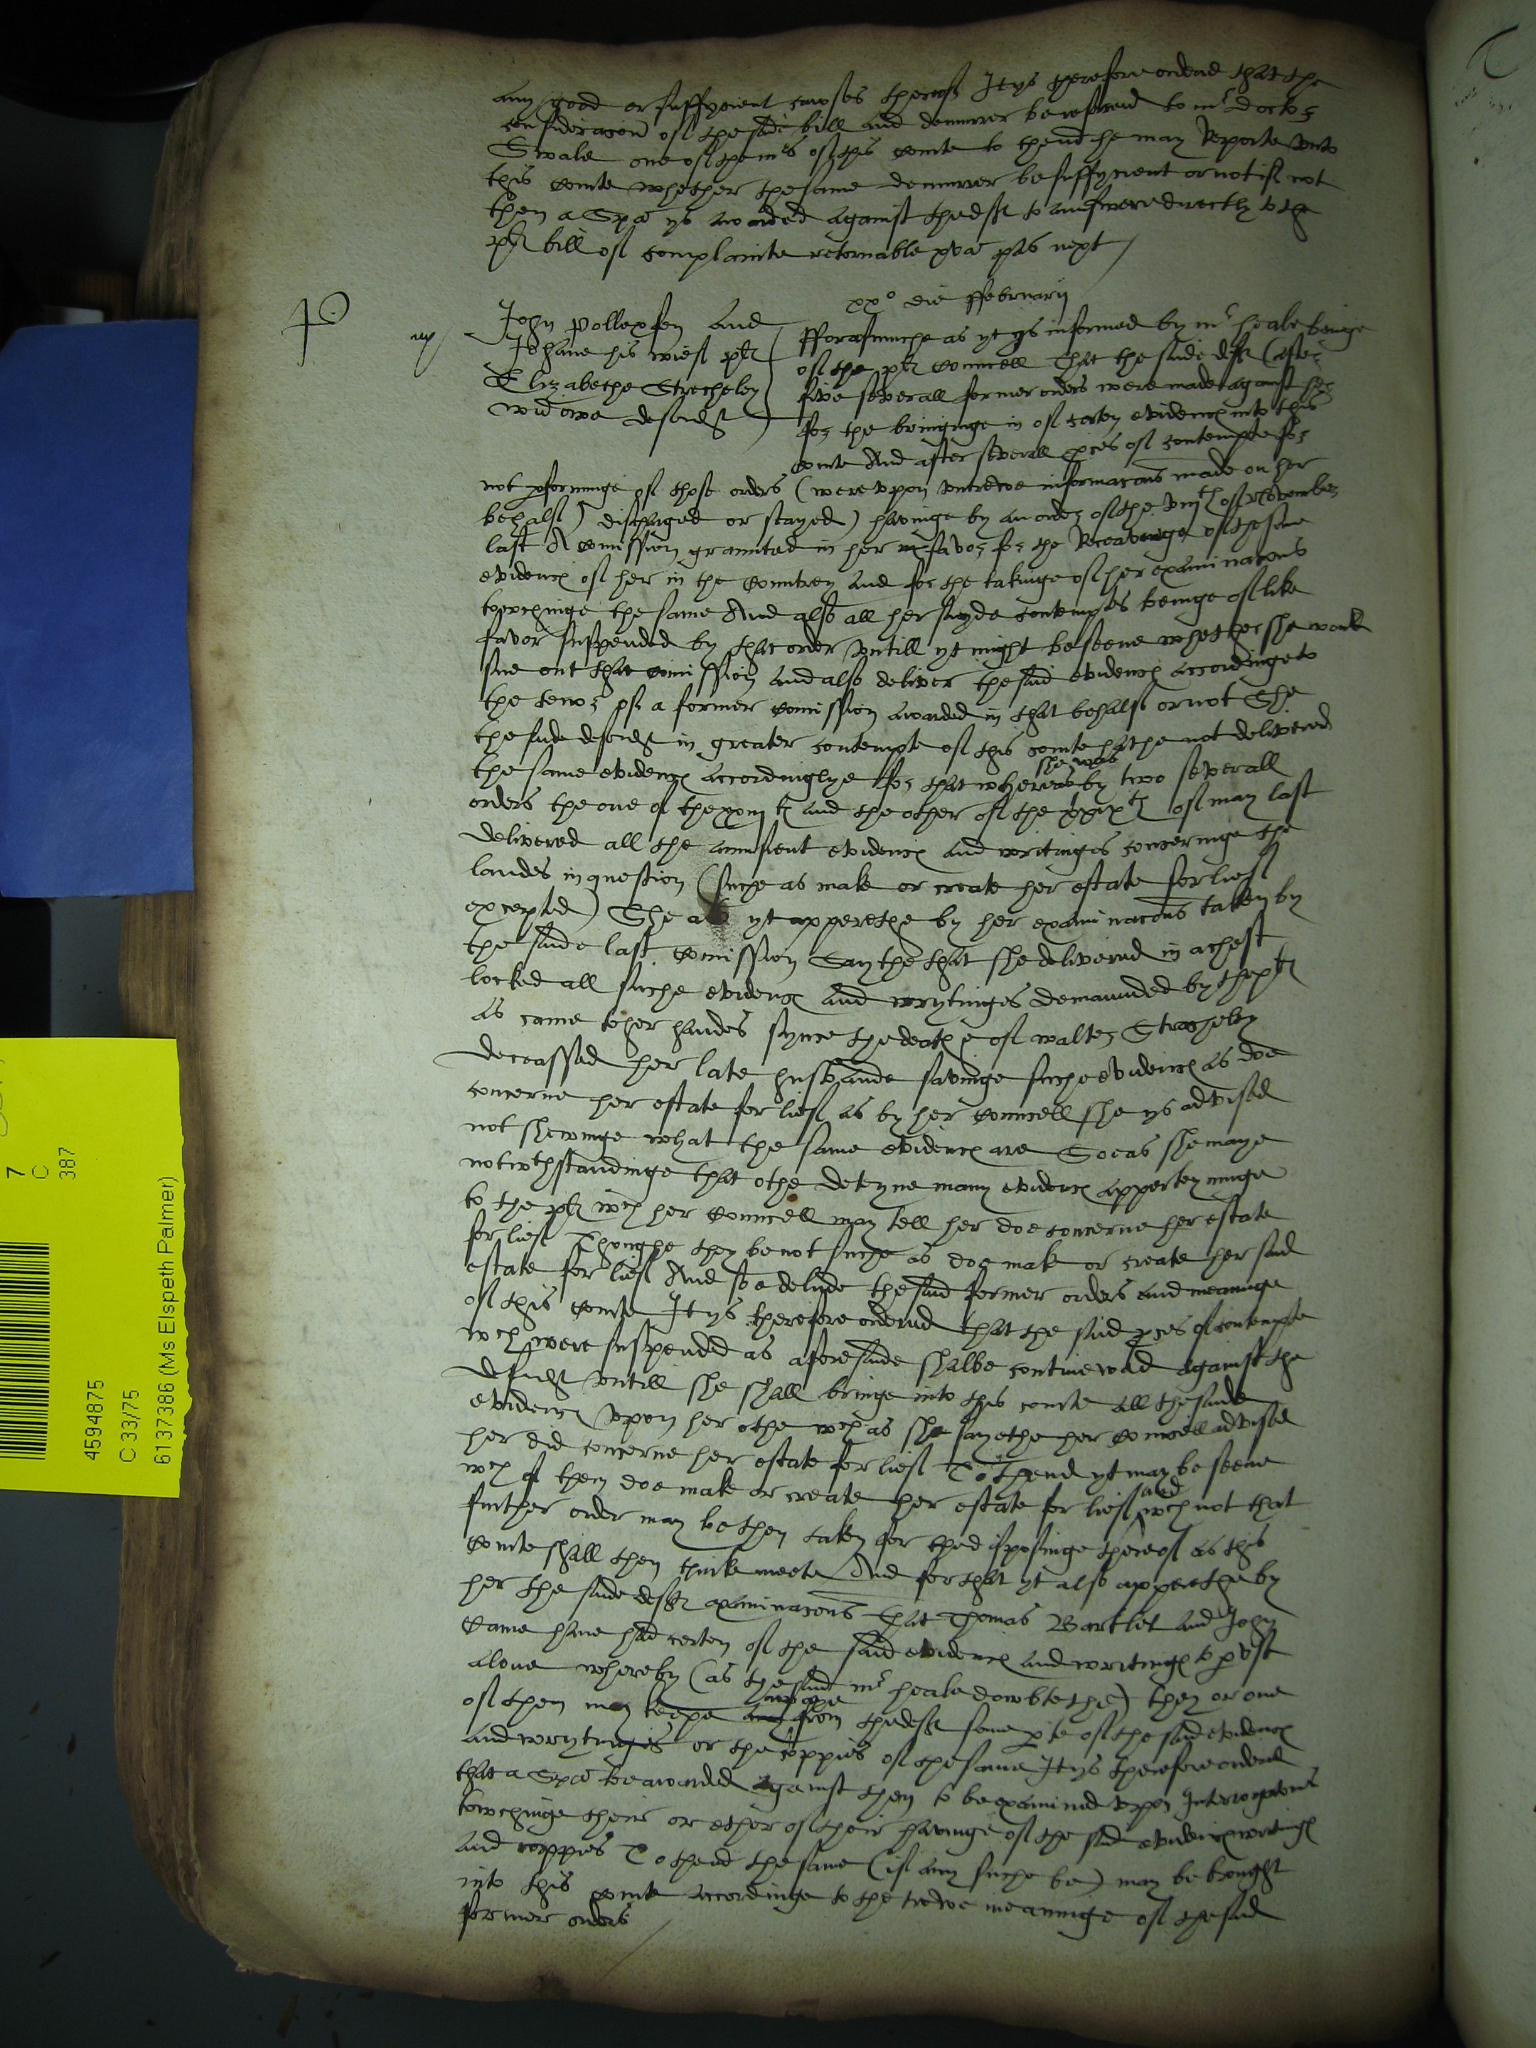 any good or suffycient causes thereof It ys therefore ordered that the
consideracion of the saide bill and demurrer be referred to mr doctor
Swale one of the mrs of this Courte to thend he may Reporte vnto
this Courte whether the same demurrer be suffycient or not if not
then a Spa ys awarded against the deft to answere directly to the
plts bill of complainte retornable xva pas next
xxo die ffebruarij
John Pollexfen and
Johane his wief plts
Elizabethe Strecheley
widowe defendt
fforasmuche as yt ys informed by mr Heale beinge
of the plts Councell That the saide deft (after
five severall former orders were made against her
for the bringinge in of certen evidences into this
Courte And after severall pces of contempte for
not pforminge of those orders (were vpon vntrewe informacons made on her
behalf) discharged or stayed) havinge by an order of the viijth of November
last A Comission graunted in her favor for the Receavinge of the same
evidences of her in the Countrey and for the takinge of her examinacons
towchinge the same And also all her sayde contempts beinge of like
favor suspended by that order vntill yt might be seene whether she would
sue out that Comission and also deliver the said evidences accordinge to
the tenor of a former Comission awarded in that behalf or not She
the saide defendt in greater contempte of this Courte hathe not delivered
the same evidences accordinglye for that whereas she was by two severall
orders the one of the xxiijth and the other of the xxixth of may last
delivered all the auncient evidences and writinges concerninge the
landes in question (suche as make or create her estate for lief
excepted) She as yt apperethe by her examinacons taken by
the saide last Comission Saythe that she delivered in a chest
locked all suche evidences and wrytinges demaunded by the plts
as came to her handes synce the deathe of walter Strecheley
deceassed her late husbande savinge suche evidences as doe
concerne her estate for lief as by her Councell she ys advised
not shewinge what the same evidences are Soe as she maye
notwthstandinge that othe deteyne many evidences apperteyninge
to the plts wch her Councell may tell her doe concerne her estate
for lief Thoughe they be not suche as doe make or create her said
estate for lief And soe delude the said former orders and meaninge
of this Courte It ys therefore ordered that the said pces of contempte
wch were suspended as aforesaide shalbe continewed against the
defendt vntill she shall bringe into this Courte all the saide
evidences vpon her othe wch as she sayethe her Councell advised
her did concerne her estate for lief To thend yt may be seene
wch of them doe make or create her estate for lief and wch not that
further order may be then taken for the disposinge thereof as this
Courte shall then thinke meete And for that yt also apperethe by
her the saide defts examinacons that Thomas Bartlet and John
Came have had certen of the said evidences and writinges to pvse
alone whereby (as the said mr heale dowbtethe) they or one
of them may keepe awaye from the deft some pte of the said evidences
and wrytinges or the coppies of the same It ys therefore ordered
that a Spa be awarded against them to be examined vpon Interrogatories
towchinge their or ether of their havinge of the said evidences writinges
and coppies To thend the same (if any suche be) may be brought
into this Courte accordinge to the trewe meaninge of the said
former orders
7
C
387
4594875
C 33/75
6137386 (Ms Elspeth Palmer)